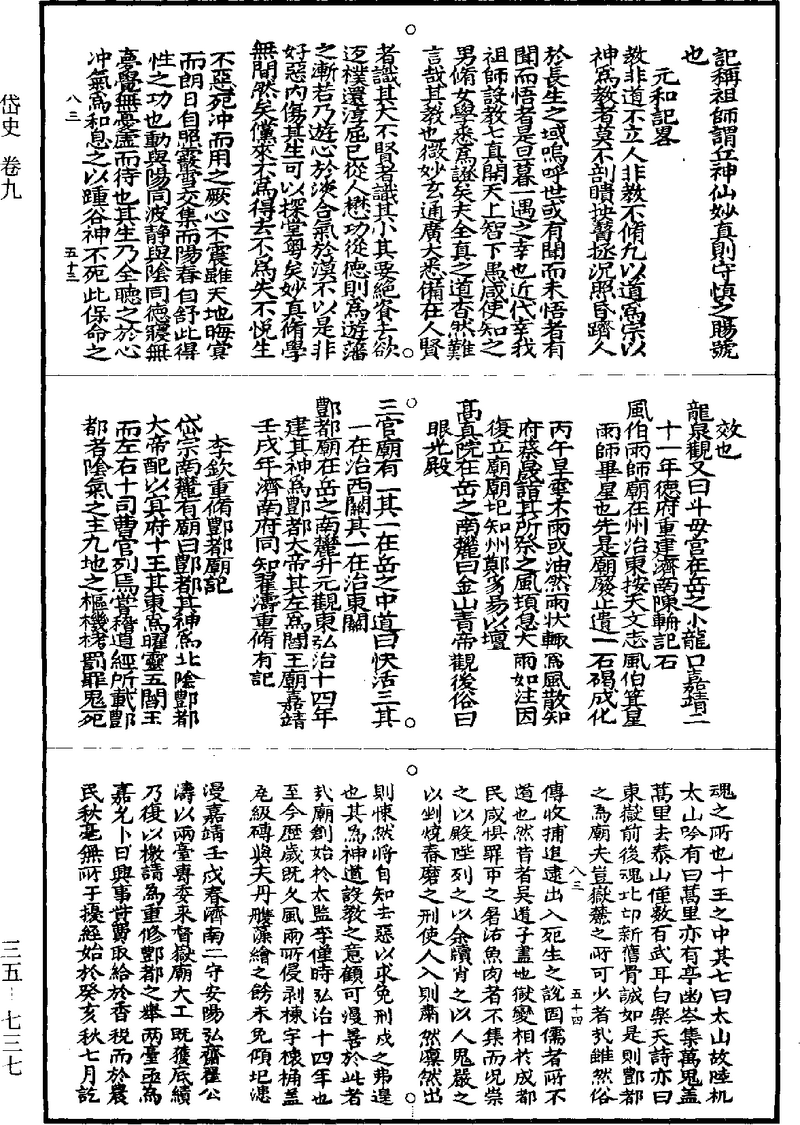 岱史 卷九
記稱祖師謂丘神仙妙真則守慎之賜號
也
元和記畧
教非道不立人非教不脩凢以道爲宗以
神爲教者莫不剖瞔抉瞖拯況照昏躋人
於長生之域嗚呼世或有聞而未悟者有
聞而悟者是旦暮一遇之幸也近代幸我
祖師設教七真闡天上智下愚咸使知之
男脩女學悉爲證矣夫全真之道杳然難
言哉其教也微妙玄通廣大悉備在人賢
者識其大不賢者識其小其要絶資去欲
返樸還淳屈已從人懋功從德則爲遊藩
之漸若乃遊心於淡合氣於漠不以是非
好惡内傷其生可以探堂奧矣妙真脩學
無間然矣儻來不爲得去不爲失不悦生
不惡死冲而用之厥心不震雖天地晦冥
而朗日自照霰雪交集而陽春自舒此得
性之功也動與陽同波静與陰同德寢無
夢覺無憂虛而待也其生乃全聽之於心
冲氣爲和息之以踵谷神不死此保命之
八三
五十三
效也
龍泉觀又曰斗母宫在岳之小龍口嘉靖二
十一年德府重建濟南陳輪記石
風伯雨師廟在州治東按天文志風伯箕星
雨師畢星也先是廟廢止遺一石碣成化
丙午旱雩不雨或油然雨狀輙爲風散知
府蔡晟詣其所祭之風頓息大雨如注因
復立廟廟圯知州鄭豸易以壇
髙真院在岳之南麓曰金山青帝觀後俗曰
眼光殿
三官廟有三其一在岳之中道曰快活三其
一在治西關其一在治東關
酆都廟在岳之南麓升元觀東弘治十四年
建其神爲酆都大帝其左爲閻王廟嘉靖
壬戌年濟南府同知翟濤重脩有記
李欽重脩酆都廟記
岱宗南麓有廟曰酆都其神爲北陰酆都
大帝配以冥府十王其東爲曜靈五閻王
而左右十司曹官列焉嘗稽道經所載酆
都者陰氣之主九地之樞機栲罰罪鬼死
魂之所也十王之中其七曰太山故陸机
太山吟有曰萬里亦有亭幽岑集萬鬼蓋
萬里去泰山僅數百武耳白樂天詩亦曰
東嶽前後魂北邙新舊骨誠如是則酆都
之爲廟夫豈嶽麓之所可少者㢤雖然俗
傳收捕追逮出入死生之說固儒者所不
道也然昔者吴道子畫地獄變相於成都
民咸惧罪市之屠沽魚肉者不集而况崇
之以殿陛列之以余牘肖之以人鬼嚴之
以剉燒舂磨之刑使人入則肅然凛然出
則悚然將自知去惡以求免刑戍之弗遑
也其爲神道設教之意顧可漫善於此者
㢤廟創始於太監李僅時弘治十四年也
至今歴歲既久風雨所侵剥棟宇榱桷蓋
瓦級磚與夫丹雘藻繪之餙未免傾圯漶
漫嘉靖壬戍春濟南二守安陽弘齋翟公
濤以兩臺專委来督嶽廟大工既獲底績
乃復以檄請爲重修酆都之舉兩臺亟爲
嘉允卜日興事貲費取給於香税而於農
民秋毫無所干擾經始於癸亥秋七月訖
八三
五十四
三五—七三七